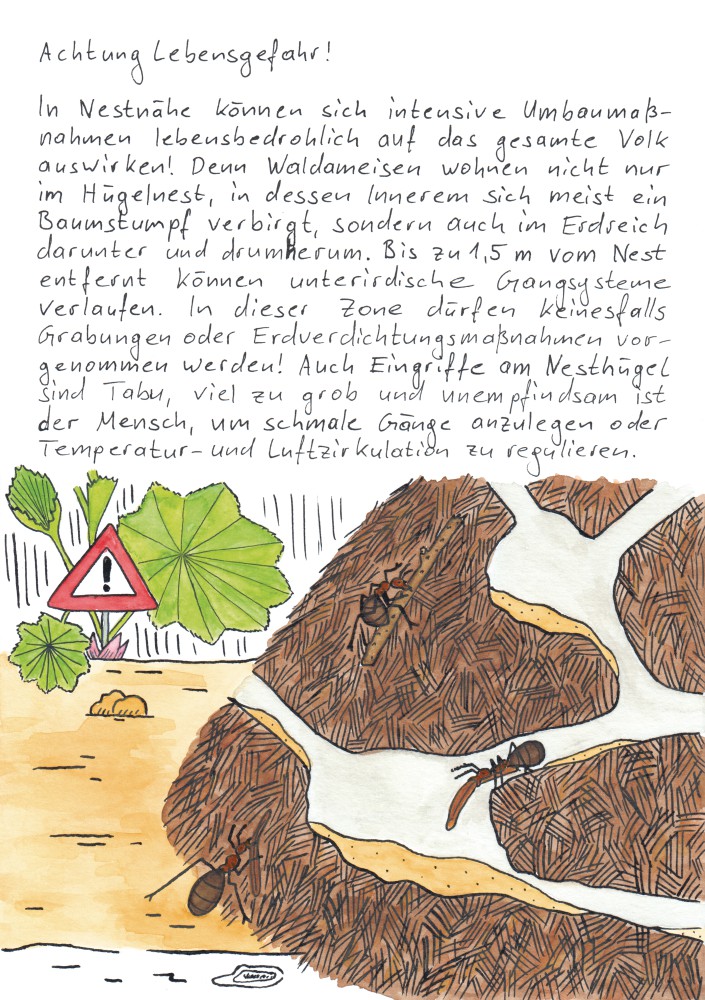 Achtung Lebensgefahr!
In Nestnähe können sich intensive Umbaumaß-
nahmen lebensbedrohlich auf das gesamte Volk
auswirken! Denn Waldameisen wohnen nicht nur
im Hügelnest, in dessen Innerem sich meist ein
Baumstumpf verbirgt, sondern auch im Erdreich
darunter und drumherum. Bis zu 1,5 m vom Nest
entfernt können unterirdische Gangsysteme
verlaufen. In dieser Zone dürfen keinesfalls
Grabungen oder Erdverdichtungsmaßnahmen vor-
genommen werden! Auch Eingriffe am Nesthügel
sind Tabu, viel zu grob und unempfindsam ist
der Mensch, um schmale Gänge anzulegen oder
Temperatur- und Luftzirkulation zu regulieren.
!